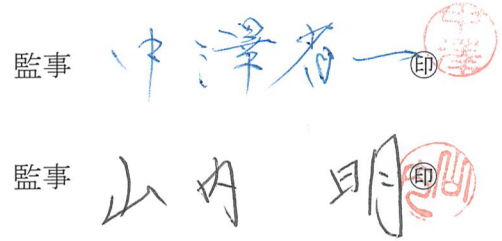 監事 中澤省一 ㊞
監事 山内 明 ㊞